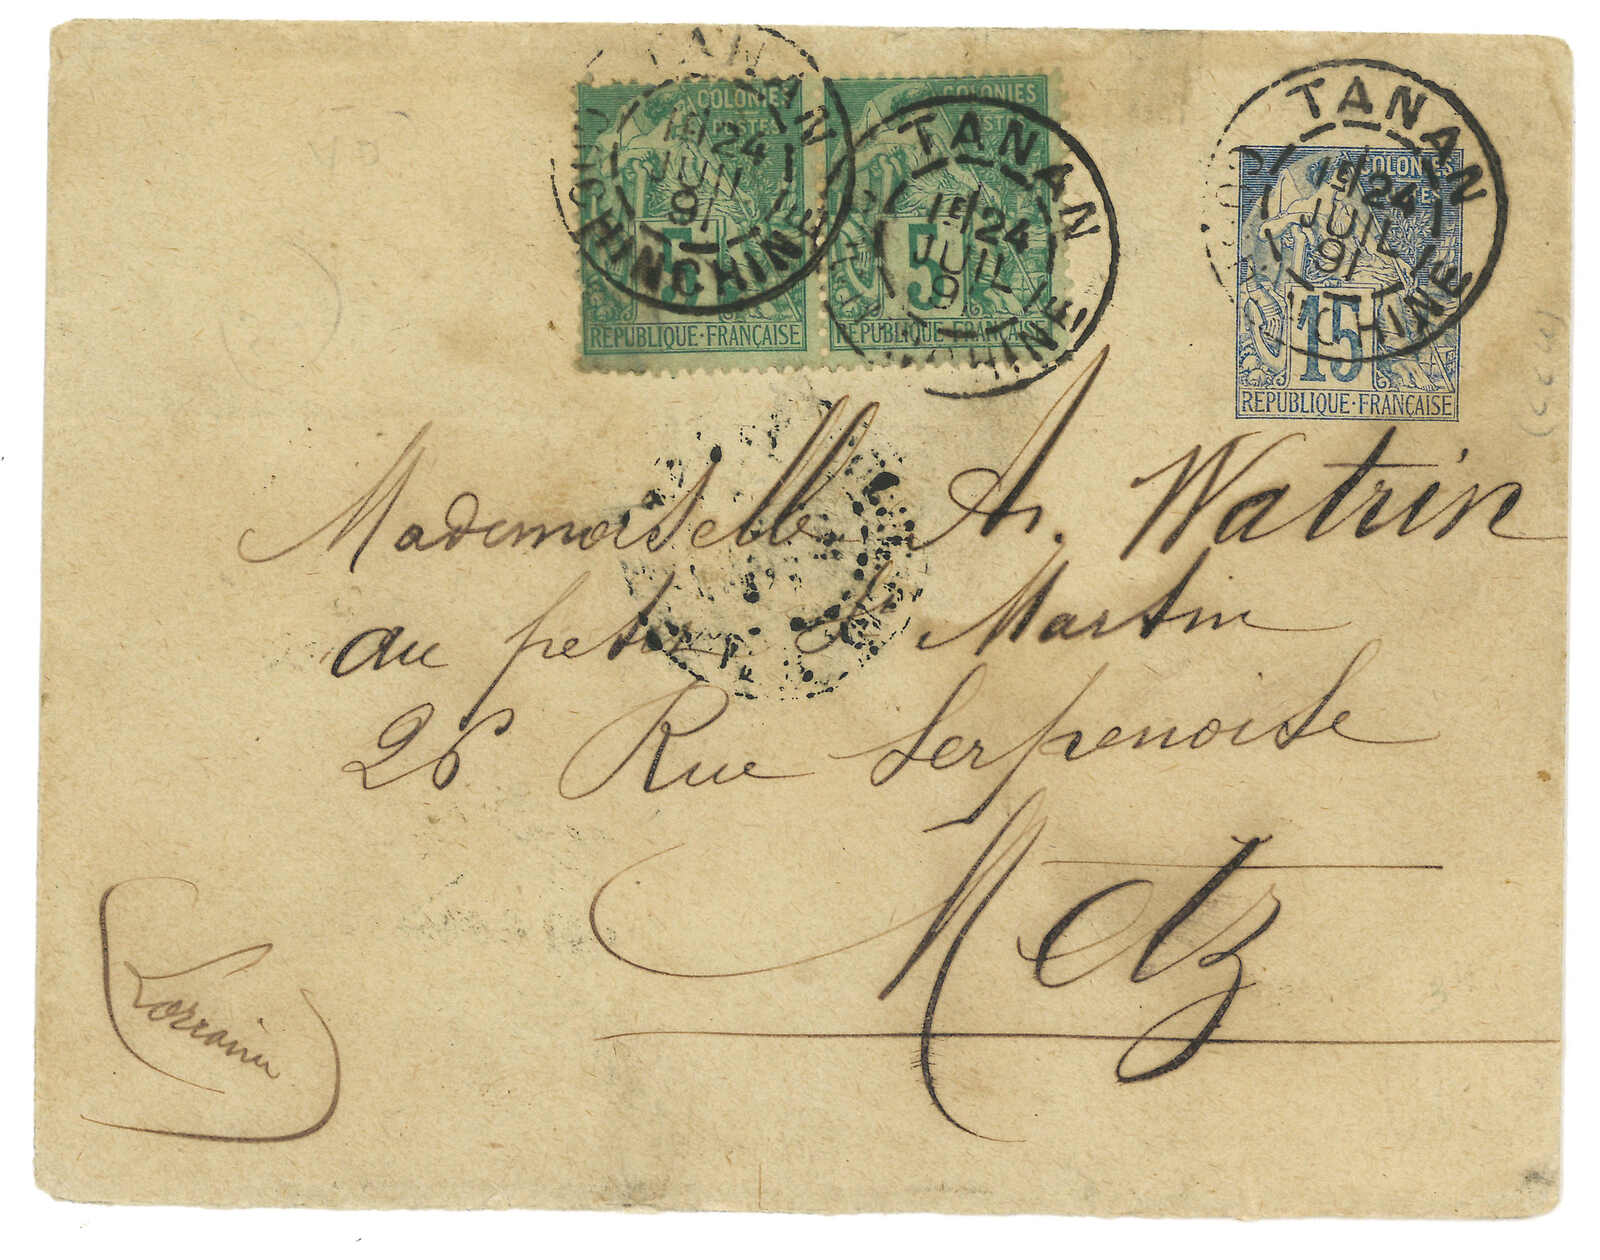 TANAN
COCHINCHINE
1E/24
JUIL
91
COLONIES
POSTES
5
REPUBLIQUE·FRANÇAISE
TANAN
CHINE
1E/24
JUIL
91
COLONIES
POSTES
5
REPUBLIQUE·FRANÇAISE
TANAN
CHINE
1E/24
JUIL
91
COLONIES
POSTES
15
REPUBLIQUE·FRANÇAISE
Mademoiselle A. Watrin
au petit St Martin
26 Rue Serpenoise
Metz
Lorraine